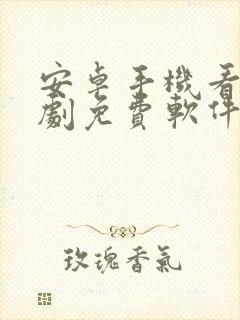 安卓手機看
劇免費軟件
玫瑰香氣